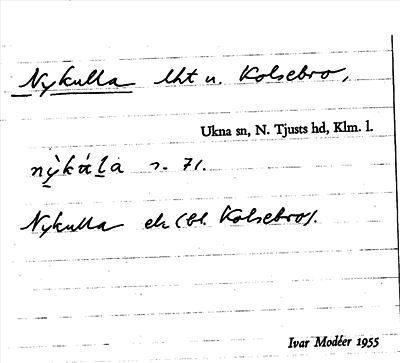 Nykulla lht u. Kolsebro,
Ukna sn, N. Tjusts hd, Klm. l.
nỳkála s. 71.
Nykulla ek (bl Kolsebro).
Ivar Modéer 1955